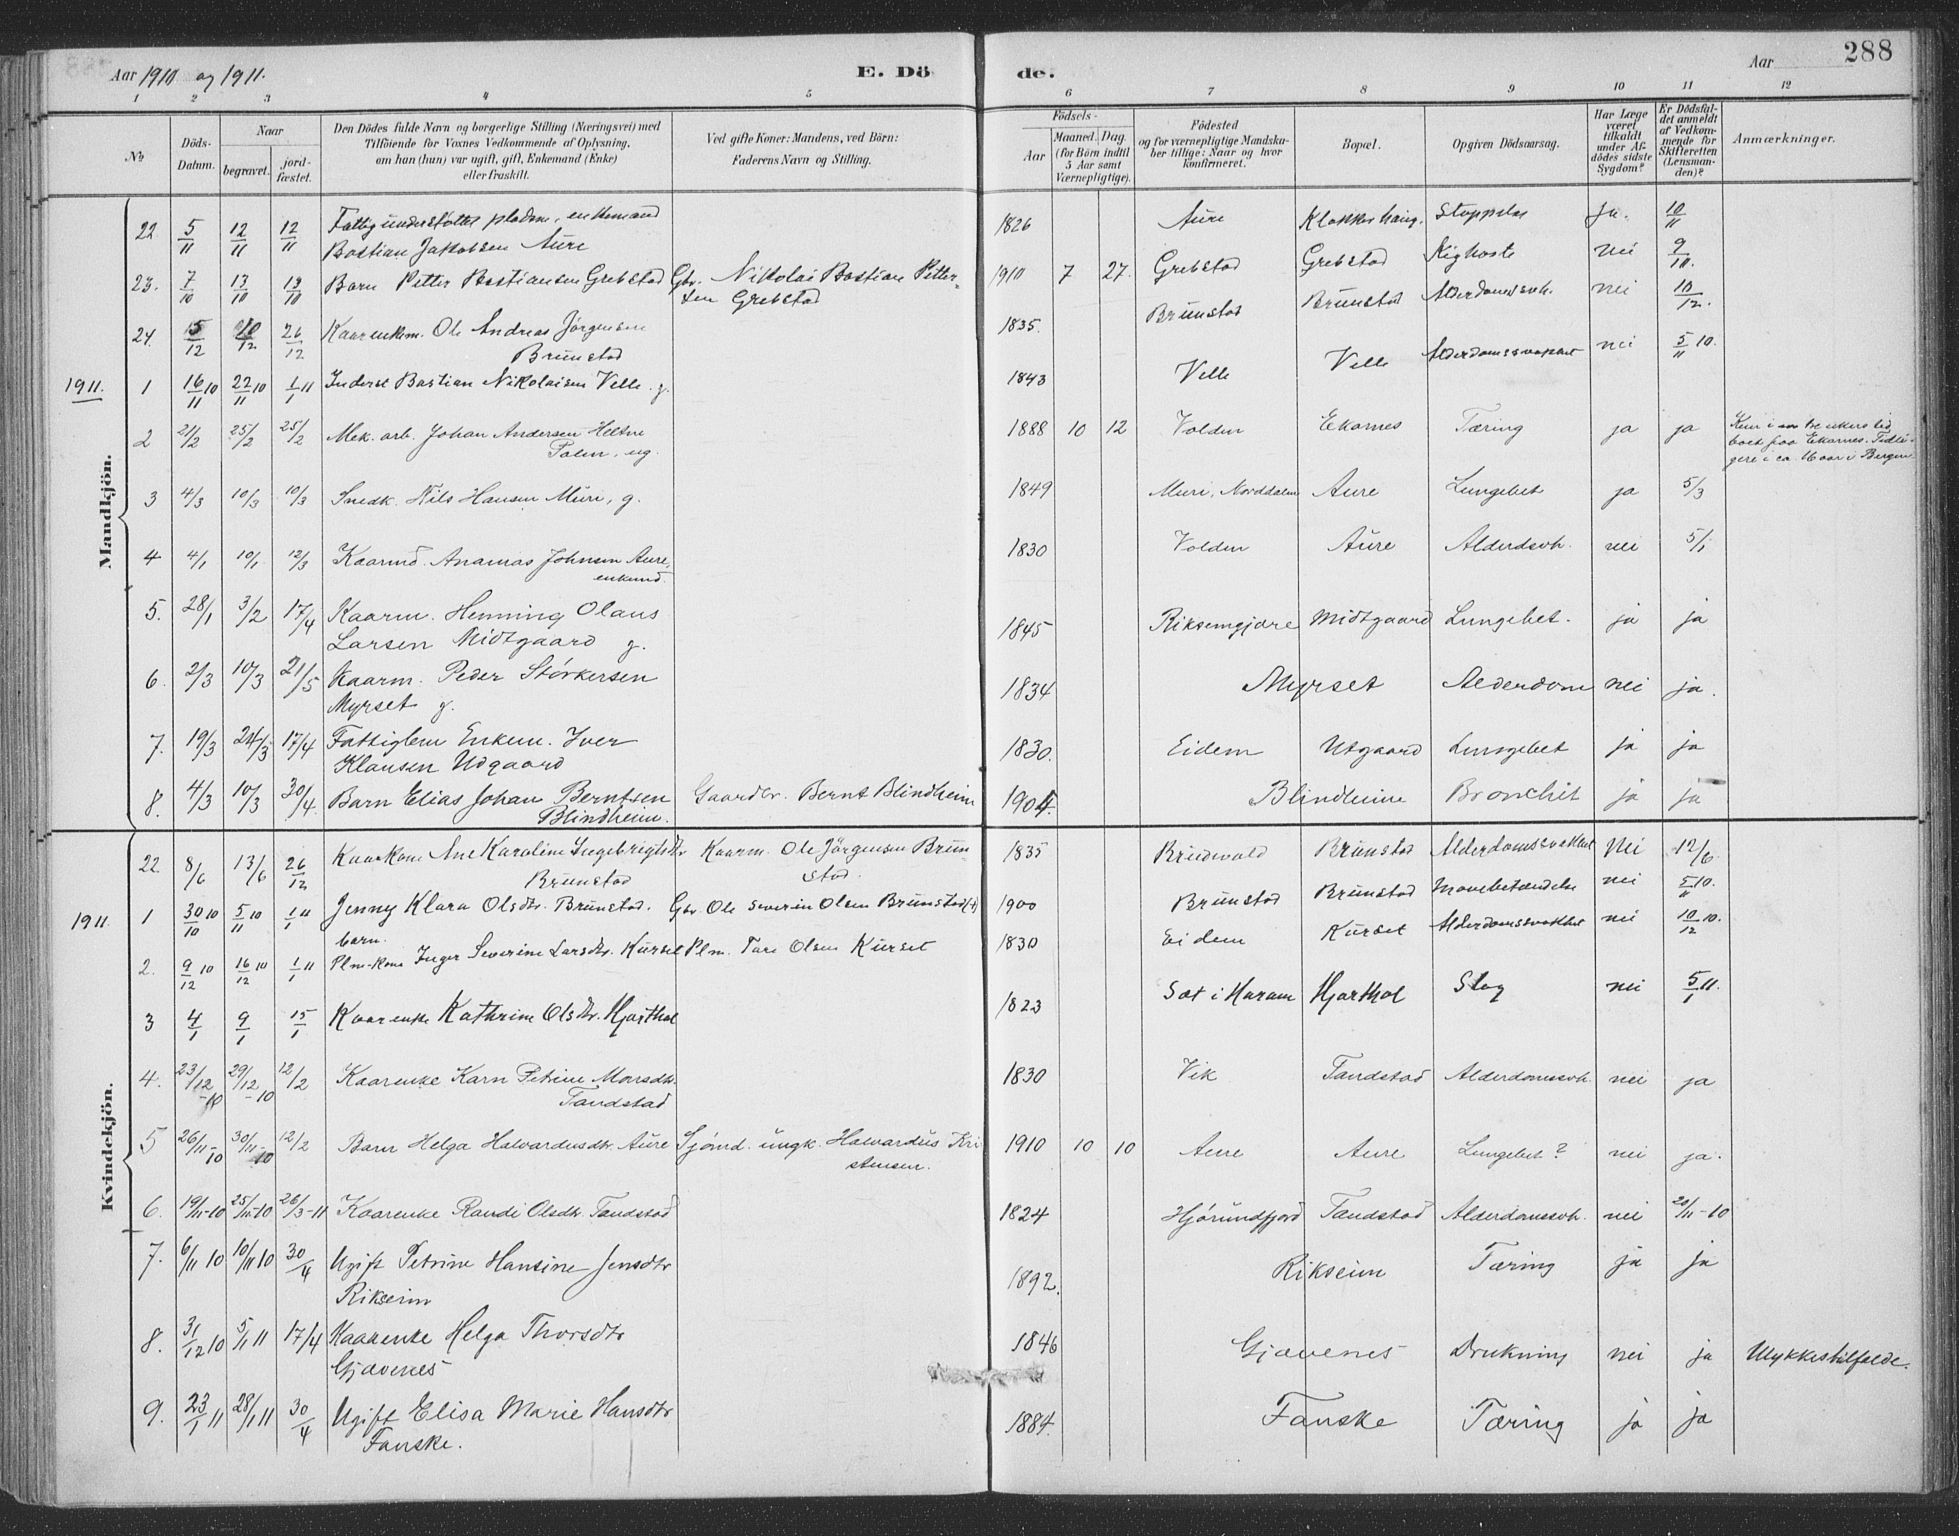 Aar 1910 og 1911.
E. Dö de.
Aar
288
1 2 3 4 5 6 7 8 9 10 11 12
No
Döds-Datum.
Naar
begravet.
jord-fæstet.
Den Dödes fulde Navn og borgerlige Stilling (Næringsvei) med
Tilföiende for Voxnes Vedkommende af Oplysning,
om han (hun) var ugift, gift, Enkemand (Enke)
eller fraskilt.
Ved gifte Koner: Mandens, ved Börn:
Faderens Navn og Stilling.
Födsels-
Aar
Maaned. Dag.
(for Börn indtil
5 Aar samt
Værnepligtige).
Födested
og for værnepligtige Mandska-
ber tillige: Naar og hvor
konfirmeret.
Bopæl.
Opgiven Dödsaarsag.
Har Læge
været
tilkaldt
under Af-
dödes sidste
Sygdom?
Er Dödsfal-
det anmeldt
af Vedkom-
mende for
Skifteretten
(Lensman-
den)?
Anmærkninger.
Mandkjön.
22 5/11 12/11 12/11 Fattigunderstøttet pladsm., enkemand
Bastian Jakobsen Aure 1826 Aure Klokkerhaug. Ja. 10/11
23. 7/10 13/10 13/10 Barn Petter Bastiansen Grebstad Gbr. Nikolai Bastian Petter-
sen Grebstad 1910 7 27. Grebstad Grebstad Kighoste nei 9/10.
24. 15/12 /12 26/12 Kaarenkem. Ole Andreas Jørgensen
Brunstad 1835. Brunstad Brunstad Alderdomssvh. nei 10/12.
1911. 1 16/11 10 22/11 10 1/1 11 Inderst Bastian Nikolaisen Velle. g. 1843 Velle Velle Alderdomssvakhet nei 5/11 10.
2 21/2 25/2 25/2 Mek. arb. Johan Andersen Heltne
ug. 1888 10 12 Volden Ekornes Tæring ja ja Kun i en tre ukers tid
boet paa Ekornes. Tidli-
gere i ca. aar i Bergen
3 4/3 10/3 10/3 Snedk. Nils Hansen Muri, g. 1849 Muri, Norddalen Aure Lungebet ja 5/3
4 4/1 10/1 12/3 Kaarmd. Ananias Johnsen Aure,
enkemd. 1830 Volden Aure Alderdsvh. nei 5/1
5. 28/1 3/2 17/4 Kaarm. Henning Olaus
Larsen Midtgaard g. 1845 Riksemgjære Midtgaard Lungebet. ja ja
6. 2/3 10/3 21/5 Kaarm. Peder Størkersen
Myrset g. 1834 Myrset Alderdom nei ja.
7. 19/3 24/3 17/4 Fattiglem Enkem. Iver
Klausen Udgaard 1830. Eidem Utgaard Lungebet ja ja
8. 4/3 10/3 30/4. Barn Elias Johan Berntsen
Blindheim. Gaardbr. Bernt Blindheim 1904. Blindheim Bronchit ja ja
Kvindekjön.
22. 8/6 13/6 26/12 Kaarkone Ane Karoline Ingebrigtsdtr
Brunstad Kaarm. Ole Jörgensen Brun-
stad. 1835 Brunstad Alderdomssvakhet Nei 12/6.
1911. 1 30/10 10 5/11 10 1/1 11 Jenny Klara Olsdtr. Brunstad.
barn. Gbr. Ole Severin Olsen Brunstad (+) 1900 Brunstad Brunstad Mavebetændelse nei 5/11 10.
2. 9/12 10 16/12 10 1/1 11 Plm-kone Inger Severine Larsdtr. Kurset Plm. Tore Olsen Kurset 1830 Eidem Kurset Alderdomssvakhet nei 10/12 10.
3 4/1 9/1 15/1 Kaarenke Kathrine Olsdtr. Hjorthol 1823 Sæt i Haram Hjorthol Slag nei 5/1 11.
4. 23/12 -10 29/12 -10 12/2 Kaarenke Karn Petrine Monsdtr.
Tandstad 1830 Vik Tandstad Alderdomssvh. nei ja
5 26/11 -10 30/11 -10 12/2 Barn Helga Halvardusdtr. Aure Sjømd. ungk. Halvardus Kri
stensen. 1910 10 10 Aure Aure Lungebet? nei ja.
6. 19/11-10 25/11-10 26/3-11 Kaarenke Randi Olsdtr. Tandstad 1824 Hjørundfjord Tandstad Alderdomssvh. nei 20/11-10
7. 6/11 10 10/11 10 30/4 Ugift Petrine Hansine Jensdtr
Rikseim 1892. Rikseim Tæring ja ja
8. 31/12 10 5/1 11 17/4 Kaarenke Helga Thorsdtr
Gjævenes 1846 Gjævenes Drukning nei ja Ulykkestilfælde.
9. 23/1 11 28/1 11 30/4 Ugift Elisa Marie Hansdtr
Fauske. 1884. Fauske Tæring ja ja